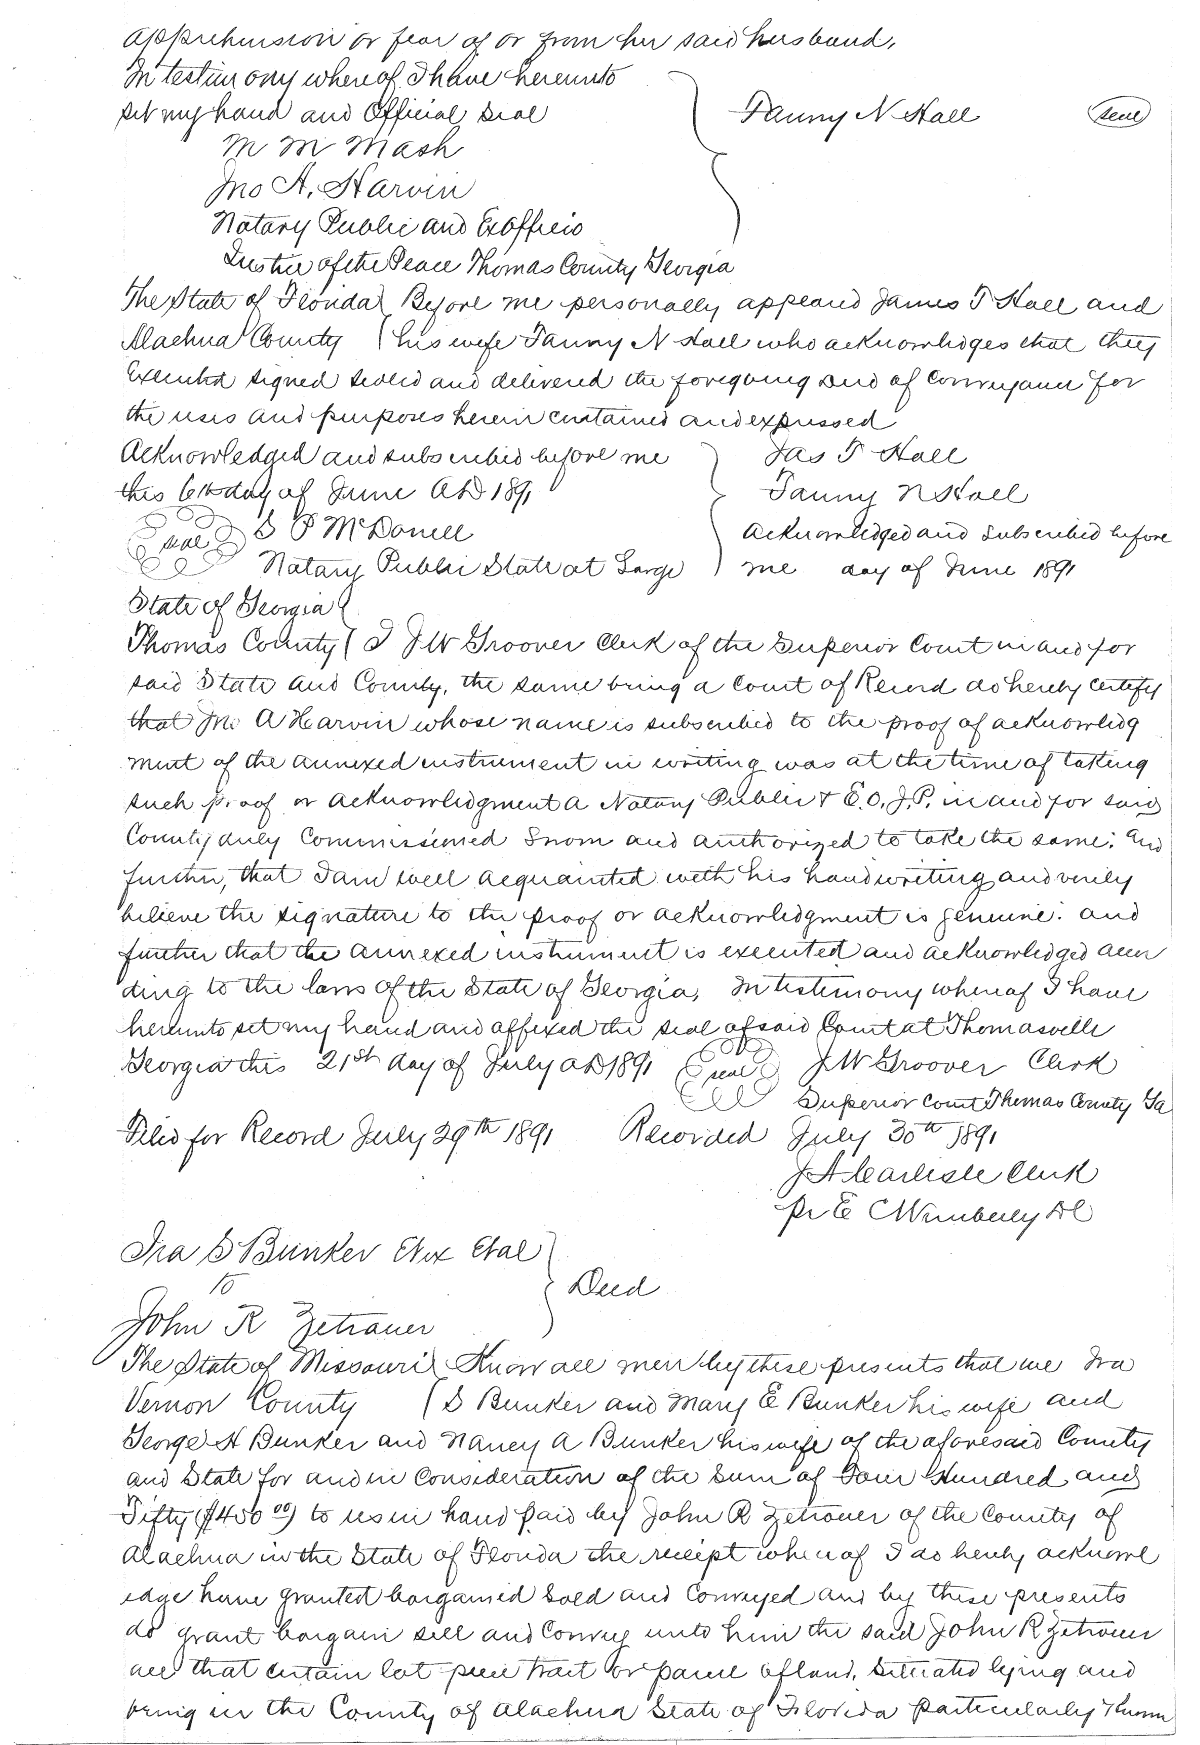 apprehension or fear of or from her said husband.
In testimony whereof I have hereunto
set my hand and Official Seal
Fanny N Hall
Seal
M M Mash
Jno A. Harvin
Notary Public and Exofficio
Justice of the Peace Thomas County Georgia
The State of Florida Before me personally appeared James T Hall and
Alachua County his wife Fanny N Hall who acknowledges that they
Executed signed sealed and delivered the foregoing deed of Conveyance for
the uses and purposes herein contained and expressed
Acknowledged and subscribed before me
this 6th day of June AD 1891
Jas T Hall
Fanny N Hall
Seal
S P McDonell
Notary Public State at Large
Acknowledged and Subscribed before
me day of June 1891
State of Georgia
Thomas County I J W Groover Clerk of the Superior Court in and for
said State and County, the same being a Court of Record do hereby certify
that Jno A Harvin whose name is subscribed to the proof of acknowledg
ment of the annexed instrument in writing was at the time of taking
such proof or acknowledgment a Notary Public & E.O. J.P. in and for said
County duly Commissioned Sworn and authorized to take the same: and
further, that I am well acquainted with his handwriting and verily
believe the signature to the proof or acknowledgment is genuine: and
further that the annexed instrument is executed and acknowledged accor
ding to the laws of the State of Georgia. In testimony whereof I have
hereunto set my hand and affixed the seal of said Court at Thomasville
Georgia this 21st day of July AD 1891
Seal
J W Groover Clerk
Superior Court Thomas County Ga
Filed for Record July 29th 1891 Recorded July 30th 1891
J A Carlisle Clerk
pr E C Wimberly DC
Ira S Bunker Etux Etal
to
Deed
John R Zetrouer
The State of Missouri Know all men by these presents that we Ira
Vernon County S Bunker and Mary E Bunker his wife and
George H Bunker and Nancy A Bunker his wife of the aforesaid County
and State for and in Consideration of the Sum of Four Hundred and
Fifty ($450 00) to us in hand paid by John R Zetrouer of the County of
Alachua in the State of Florida the receipt whereof I do hereby acknowl
edge have granted bargained Sold and Conveyed and by these presents
do grant bargain sell and Convey unto him the said John R Zetrouer
all that certain lot piece tract or parcel of land, Situated lying and
being in the County of Alachua State of Florida particularly Known